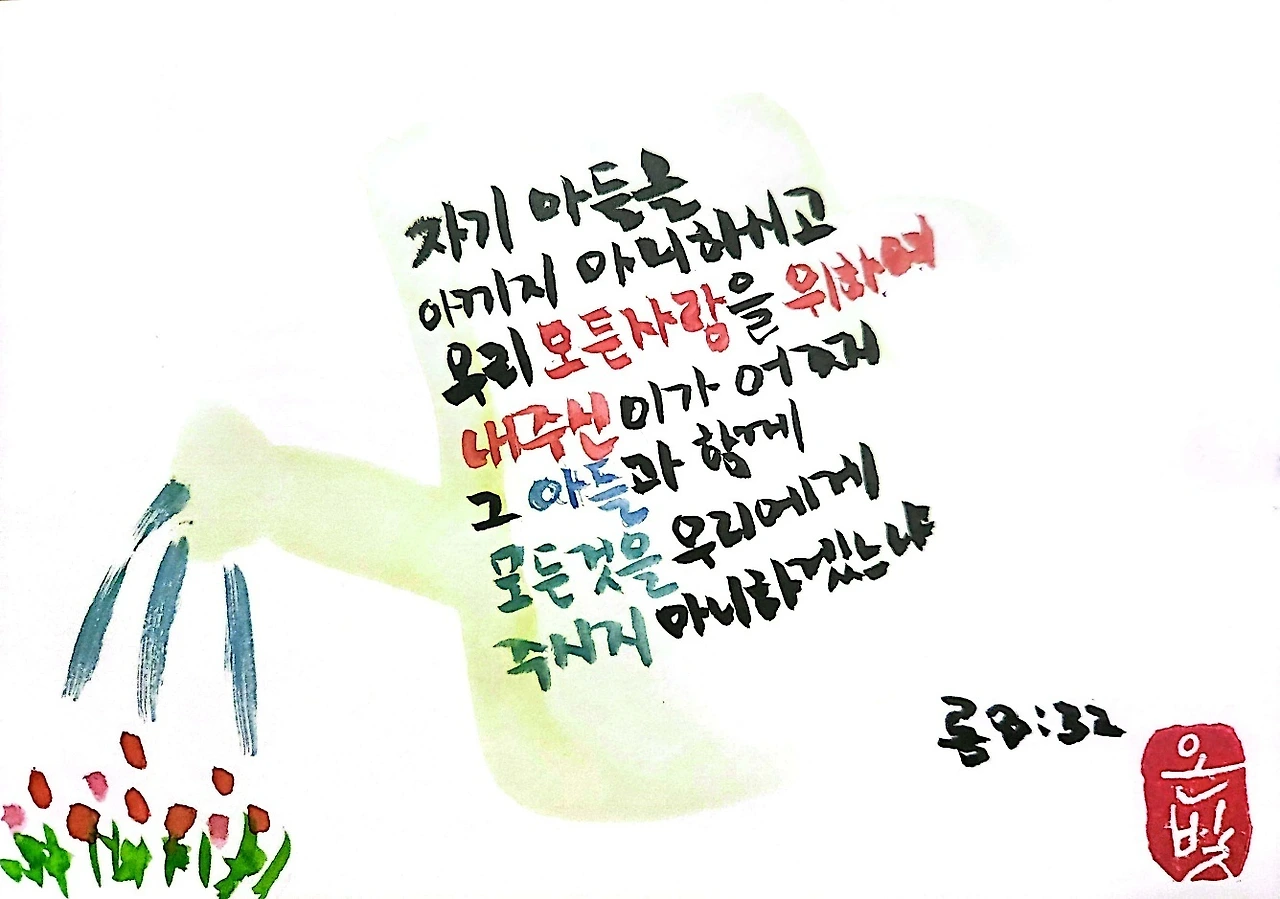 자기 아들을
아끼지 아니하시고
우리 모든사람을 위하여
내주신 이가 어찌
그 아들과 함께
모든것을 우리에게
주시지 아니하겠느냐
롬8:32
은빛